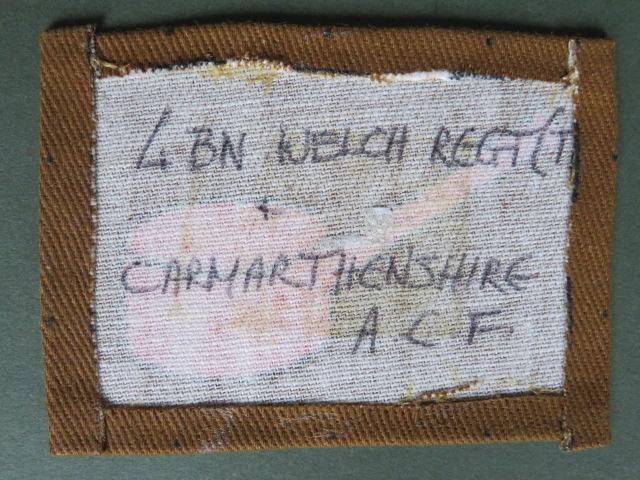 4 BN WELCH REGT (T
+
CARMARTHENSHIRE
A C F